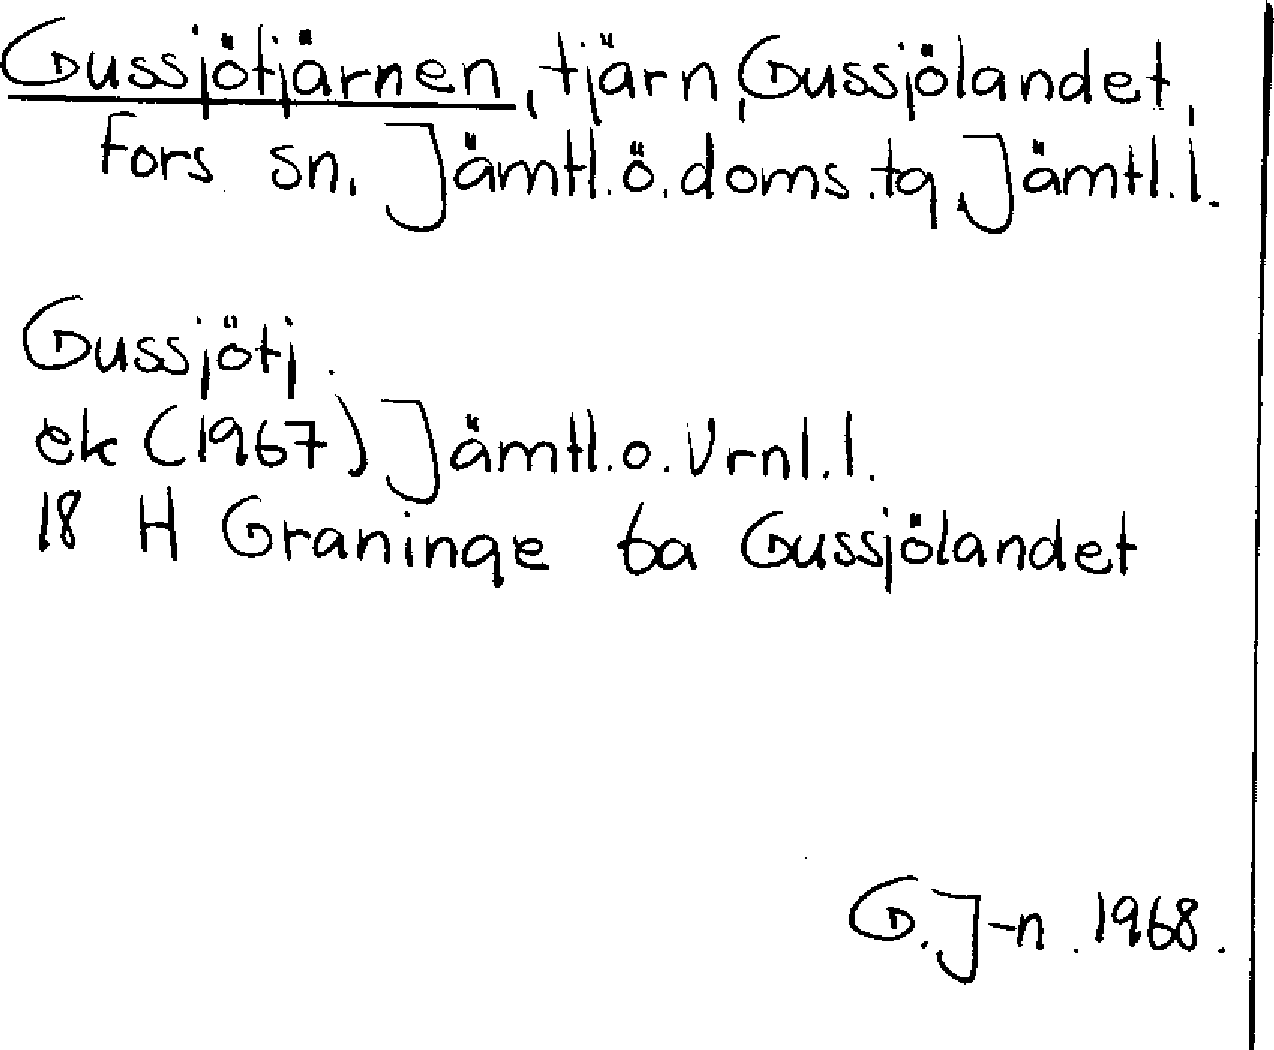 Gussjötjärnen, tjärn, Gussjölandet,
Fors sn, Jämtl.ö.doms.tg, Jämtl.l.
Gussjötj.
ek (1967) Jämtl.o.Vrnl.l.
18 H Graninge 6a Gussjölandet
G.J-n. 1968.